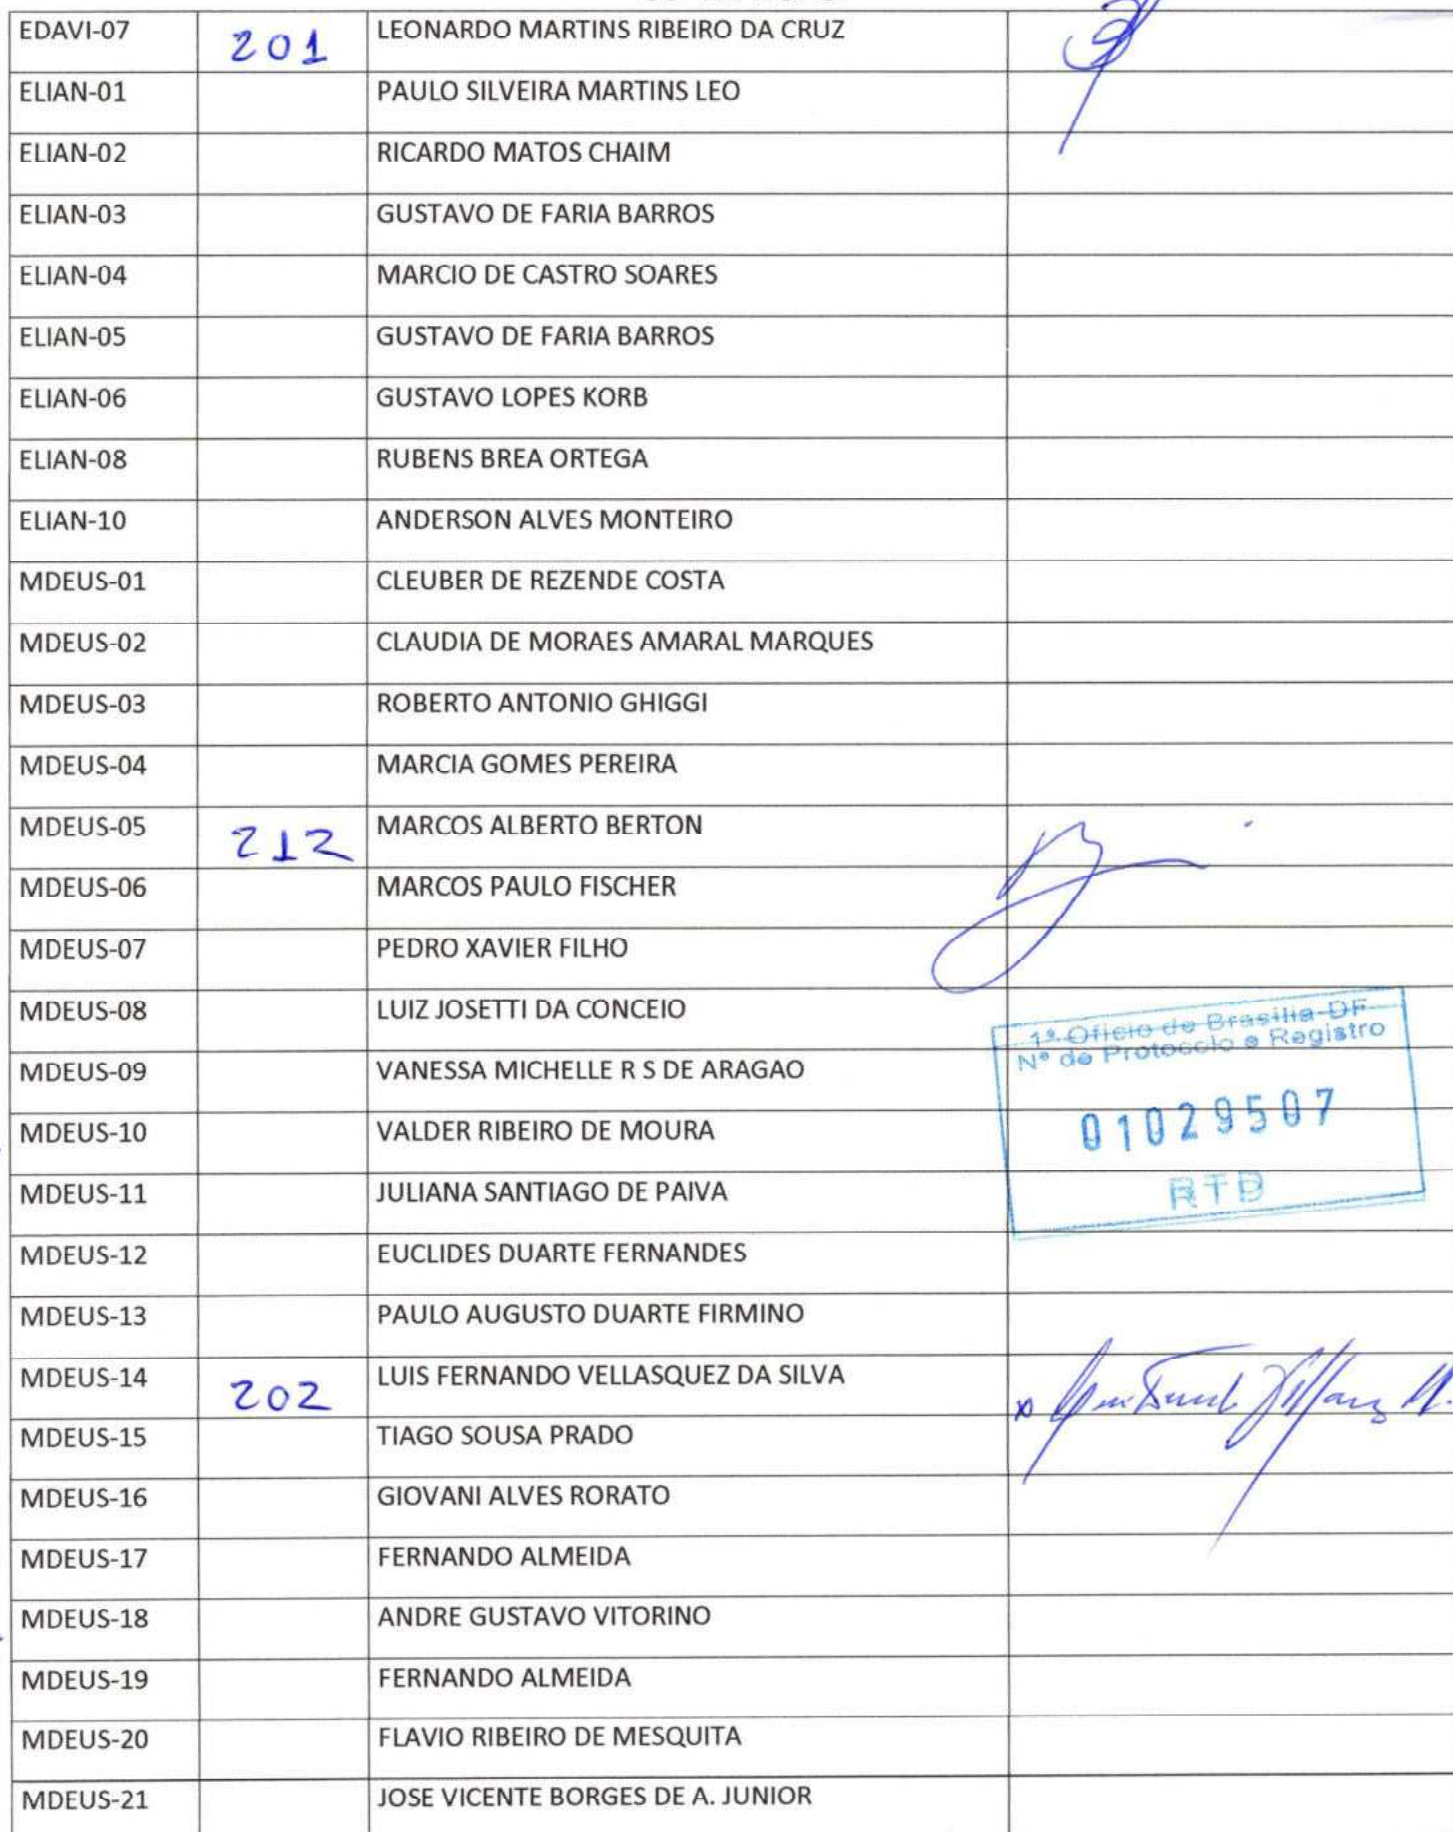 EDAVI-07 201 LEONARDO MARTINS RIBEIRO DA CRUZ
ELIAN-01 PAULO SILVEIRA MARTINS LEO
ELIAN-02 RICARDO MATOS CHAIM
ELIAN-03 GUSTAVO DE FARIA BARROS
ELIAN-04 MARCIO DE CASTRO SOARES
ELIAN-05 GUSTAVO DE FARIA BARROS
ELIAN-06 GUSTAVO LOPES KORB
ELIAN-08 RUBENS BREA ORTEGA
ELIAN-10 ANDERSON ALVES MONTEIRO
MDEUS-01 CLEUBER DE REZENDE COSTA
MDEUS-02 CLAUDIA DE MORAES AMARAL MARQUES
MDEUS-03 ROBERTO ANTONIO GHIGGI
MDEUS-04 MARCIA GOMES PEREIRA
MDEUS-05 212 MARCOS ALBERTO BERTON
MDEUS-06 MARCOS PAULO FISCHER
MDEUS-07 PEDRO XAVIER FILHO
MDEUS-08 LUIZ JOSETTI DA CONCEIO
1º Oficio de Brasilia-DF
Nº de Protocolo e Registro
MDEUS-09 VANESSA MICHELLE R S DE ARAGAO
MDEUS-10 VALDER RIBEIRO DE MOURA
01029507
MDEUS-11 JULIANA SANTIAGO DE PAIVA
RTD
MDEUS-12 EUCLIDES DUARTE FERNANDES
MDEUS-13 PAULO AUGUSTO DUARTE FIRMINO
MDEUS-14 202 LUIS FERNANDO VELLASQUEZ DA SILVA
MDEUS-15 TIAGO SOUSA PRADO
MDEUS-16 GIOVANI ALVES RORATO
MDEUS-17 FERNANDO ALMEIDA
MDEUS-18 ANDRE GUSTAVO VITORINO
MDEUS-19 FERNANDO ALMEIDA
MDEUS-20 FLAVIO RIBEIRO DE MESQUITA
MDEUS-21 JOSE VICENTE BORGES DE A. JUNIOR